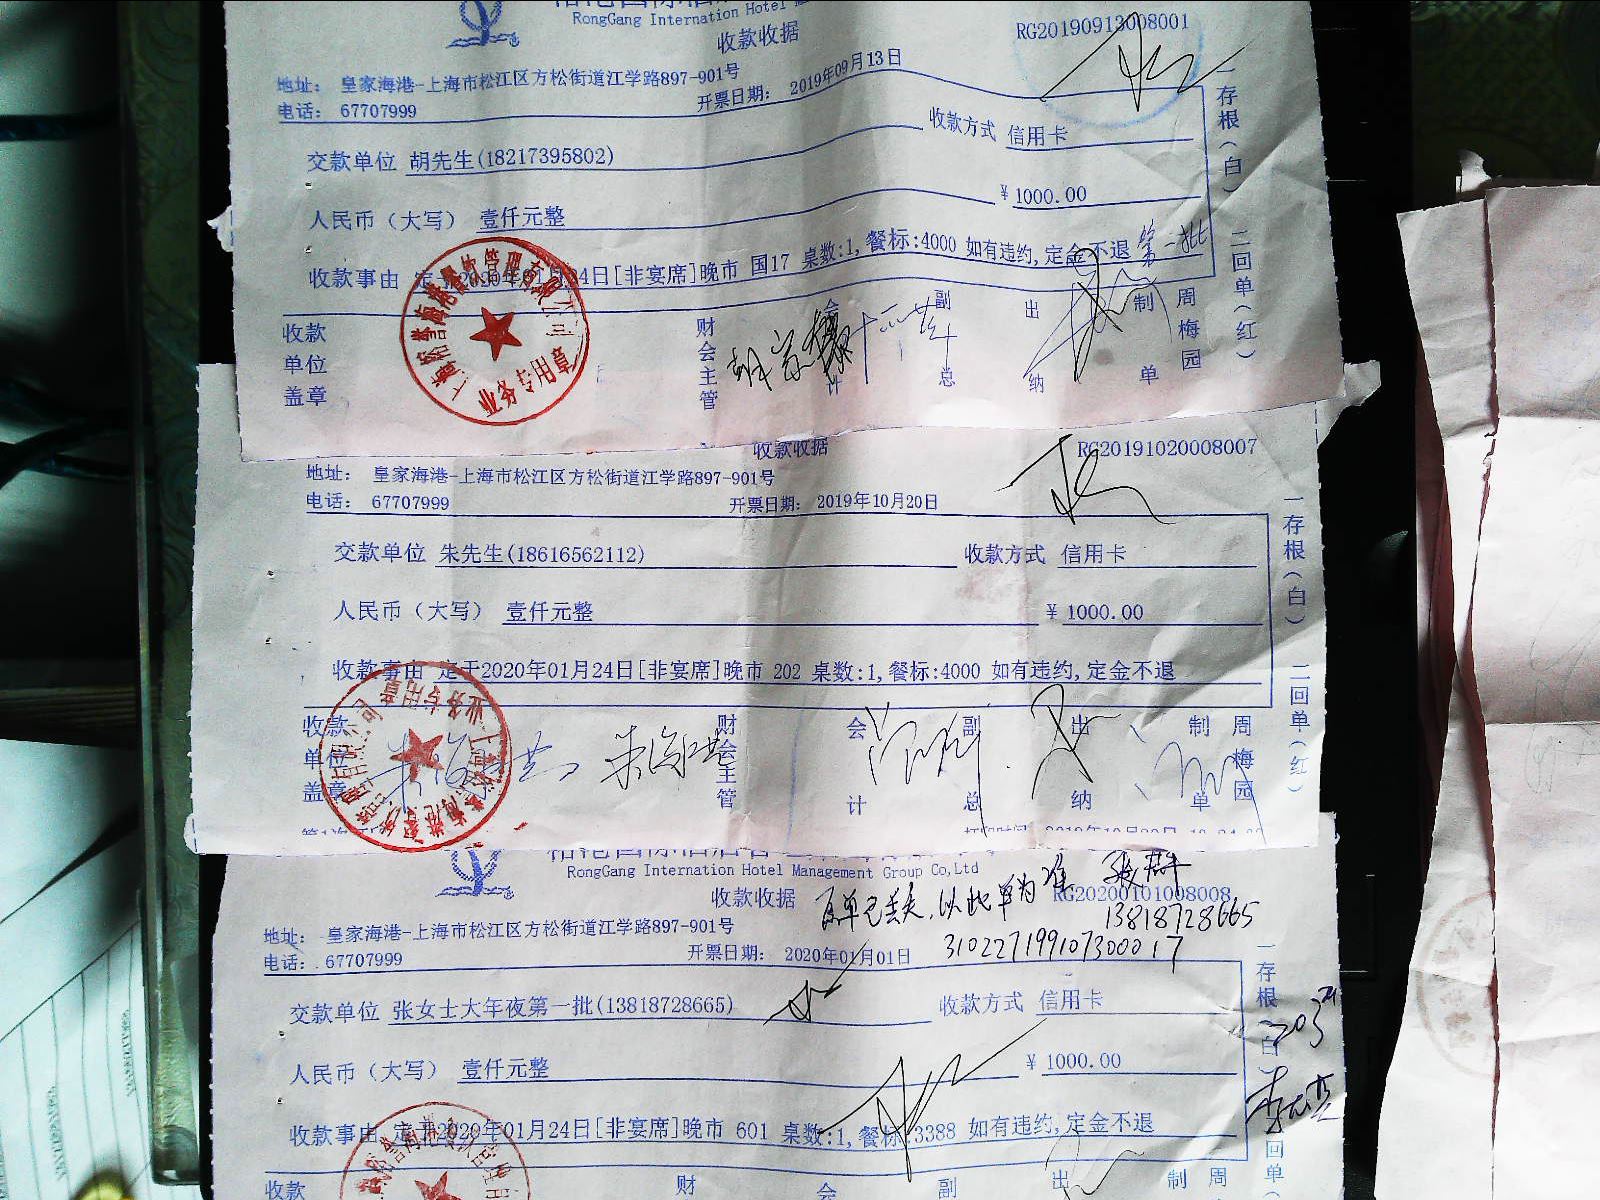 RongGang Internation Hotel
收款收据
RG20190913008001
地址： 皇家海港-上海市松江区方松街道江学路897-901号
电话： 67707999
开票日期： 2019年09月13日
交款单位 胡先生(18217395802)
收款方式 信用卡
人民币（大写） 壹仟元整
¥ 1000.00
收款事由 定于2020年01月24日[非宴席]晚市 国17 桌数:1,餐标:4000 如有违约,定金不退 第一批
收款单位盖章
财会主管
会计
副总
出纳
制单
周梅园
一存根（白） 二回单（红）
业务专用章
收款收据
RG20191020008007
地址： 皇家海港-上海市松江区方松街道江学路897-901号
电话： 67707999
开票日期： 2019年10月20日
交款单位 朱先生(18616562112)
收款方式 信用卡
人民币（大写） 壹仟元整
¥ 1000.00
收款事由 定于2020年01月24日[非宴席]晚市 202 桌数:1,餐标:4000 如有违约,定金不退
收款单位盖章
财会主管
会计
副总
出纳
制单
周梅园
一存根（白） 二回单（红）
业务专用章
RongGang Internation Hotel Management Group Co,Ltd
收款收据
已丢失,以此单为准
RG20200101008008
13818728665
310227199107300017
地址： 皇家海港-上海市松江区方松街道江学路897-901号
电话： 67707999
开票日期： 2020年01月01日
交款单位 张女士大年夜第一批(13818728665)
收款方式 信用卡
人民币（大写） 壹仟元整
¥ 1000.00
收款事由 定于2020年01月24日[非宴席]晚市 601 桌数:1,餐标:3388 如有违约,定金不退
收款
财
会
副
出
制
周
一存根（白）
回单（